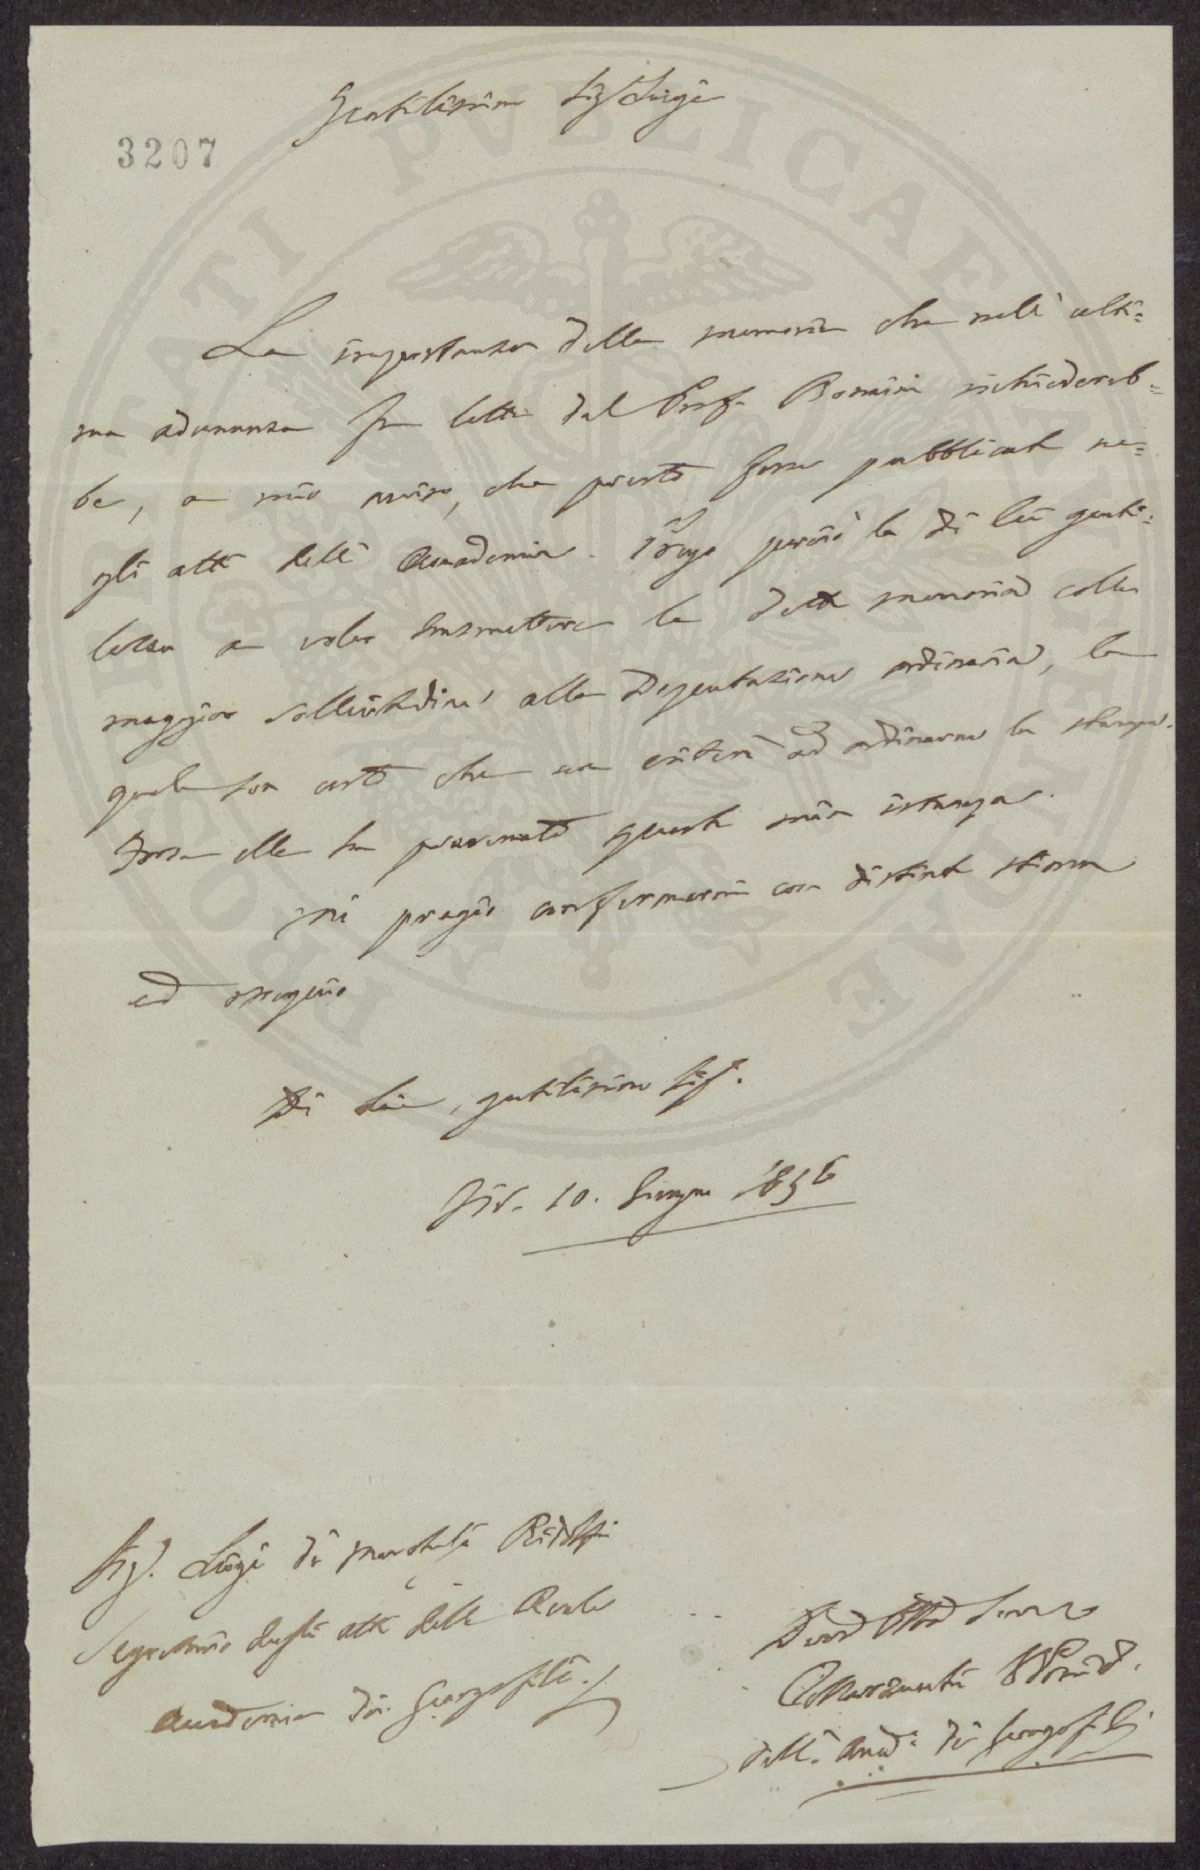 Gentilissimo Sig. Luigi
3207
La importanza della memoria che nell' ulti=
ma adunanza fu letta dal Prof. richiedereb=
be, a mio avviso, che presto fosse pubblicata ne=
gli atti dell' Accademia. Prego perciò la di Lei genti=
lezza a voler trasmettere la detta memoria colla
maggior sollecitudine alla Deputazione ordinaria, la
quale son certo che non esiterà ad ordinarne la stampa.
Forse ella ha prevenuto questa mia istanza.
Mi pregio confermarmi con distinta stima
ed ossequio
Di Lei, gentilissimo Sig.
Fir. 10. Giugno 1856
Sig. Luigi di Marchese Ridolfi
Segretario degli atti della Reale
Accademia dei Georgofili
dell' Accad. dei Georgofili
PROSPERITATI PVBLICAE AVGENDAE